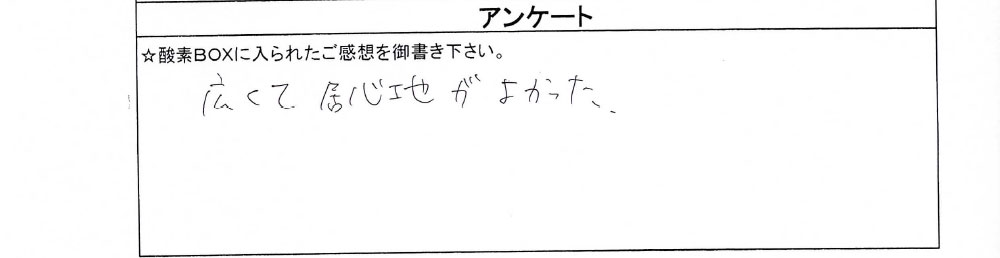 アンケート
☆酸素BOXに入られたご感想を御書き下さい。
広くて居心地がよかった。